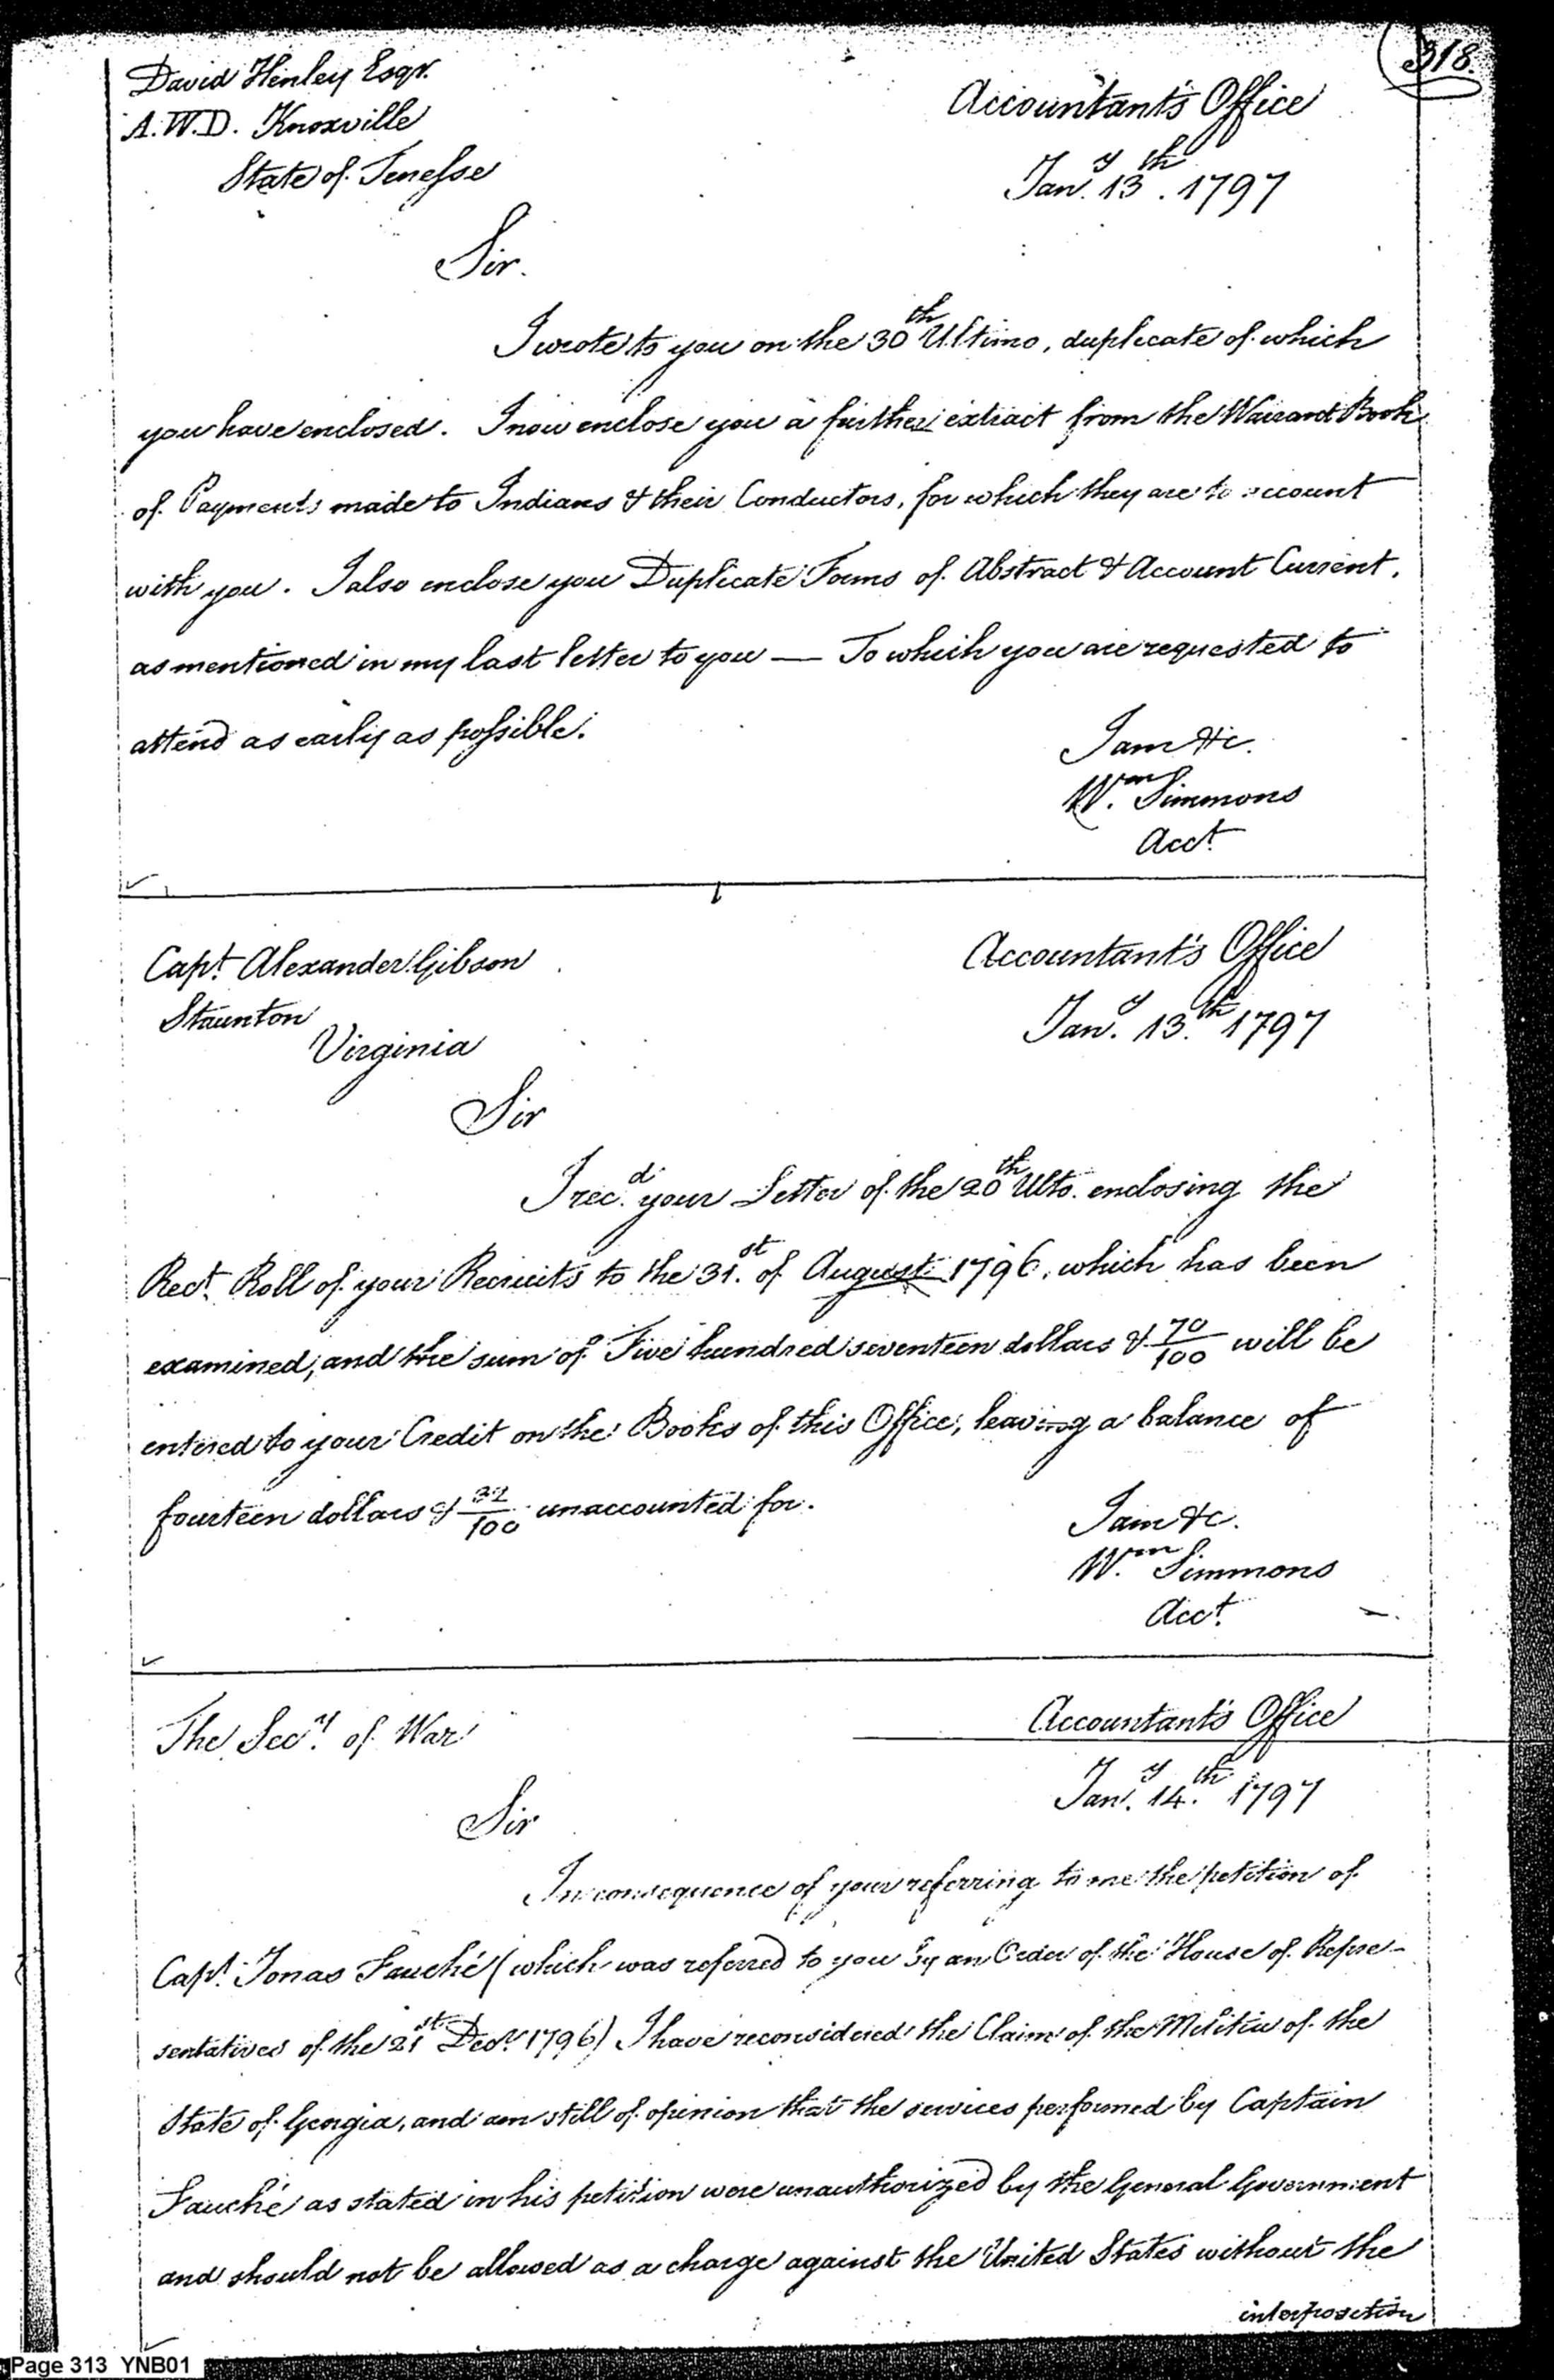 318.
David Henley Esqr.
A.W.D. Knoxville
State of Tenesse
Accountant's Office
Jany. 13th. 1797
Sir.
I wrote to you on the 30th Ultimo, duplicate of which
you have enclosed. I now enclose you a further extract from the Warrant Book
of Payments made to Indians & their Conductors, for which they are to account
with you. I also enclose you Duplicate Forms of Abstract & Account Current,
as mentioned in my last letter to you — To which you are requested to
attend as early as possible.
I am &c.
Wm. Simmons
Acct.
Capt. Alexander Gibson
Staunton
Virginia
Accountant's Office
Jany. 13th. 1797
Sir
I recd. your Letter of the 20th Ulto. enclosing the
Rect. Roll of your Recruits to the 31st. of August 1796, which has been
examined, and the sum of Five hundred seventeen dollars & 70/100 will be
entered to your Credit on the Books of this Office, leaving a balance of
fourteen dollars & /100 unaccounted for.
I am &c.
Wm. Simmons
Acct.
The Secy. of War
Accountant's Office
Jany. 14th. 1797
Sir
In consequence of your referring to me the petition of
Capt. Jonas Fauché (which was referred to you by an Order of the House of Repre-
sentatives of the 21st Decr. 1796) I have reconsidered the Claim of the Militia of the
State of Georgia, and am still of opinion that the services performed by Captain
Fauché as stated in his petition were unauthorized by the General Government
and should not be allowed as a charge against the United States without the
interposition
Page 313 YNB01